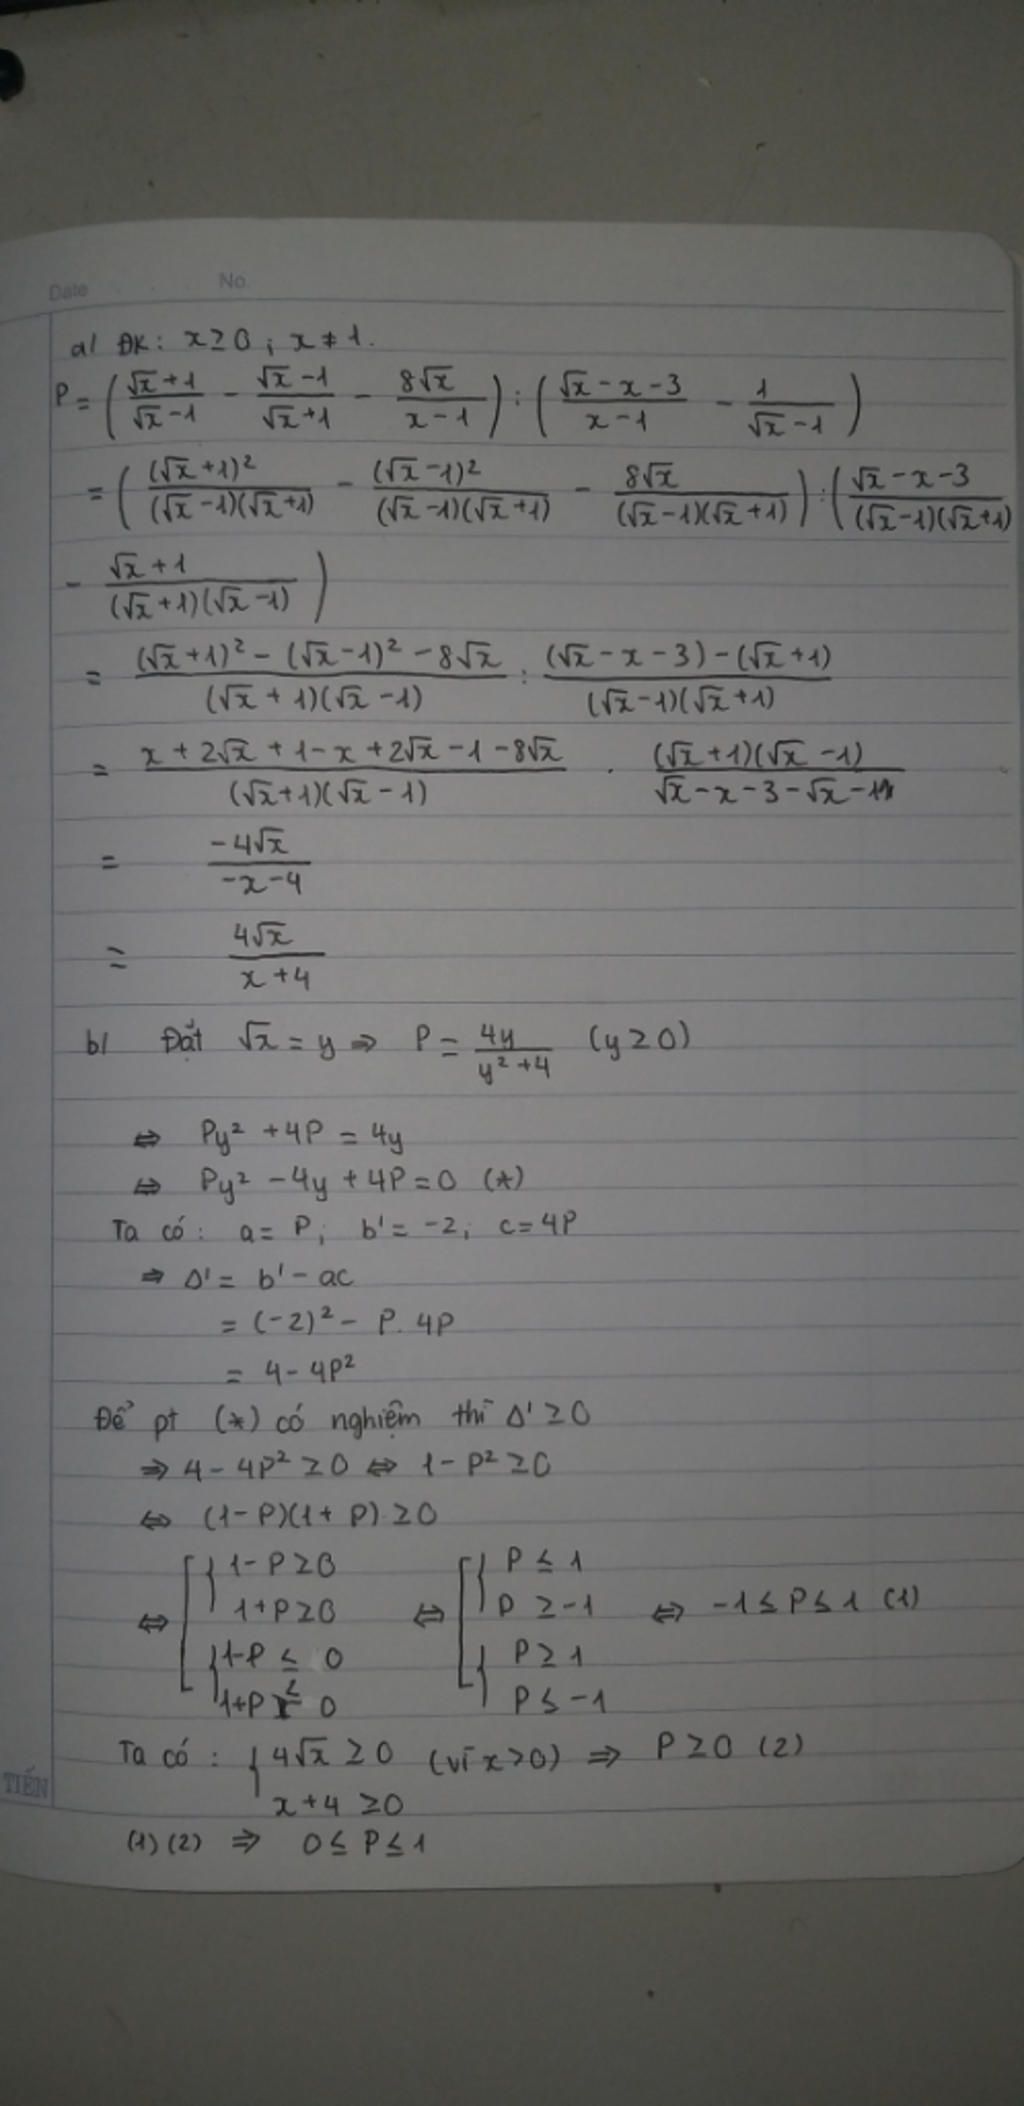 Date No.
a/ ĐK: x ≥ 0 ; x ≠ 1.
P = ( (√x + 1)/(√x - 1) - (√x - 1)/(√x + 1) - 8√x/(x - 1) ) : ( (√x - x - 3)/(x - 1) - 1/(√x - 1) )
= ( (√x + 1)²/((√x - 1)(√x + 1)) - (√x - 1)²/((√x - 1)(√x + 1)) - 8√x/((√x - 1)(√x + 1)) ) : ( (√x - x - 3)/((√x - 1)(√x + 1))
- (√x + 1)/((√x + 1)(√x - 1)) )
= ((√x + 1)² - (√x - 1)² - 8√x)/((√x + 1)(√x - 1)) : ((√x - x - 3) - (√x + 1))/((√x - 1)(√x + 1))
= (x + 2√x + 1 - x + 2√x - 1 - 8√x)/((√x + 1)(√x - 1)) . ((√x + 1)(√x - 1))/(√x - x - 3 - √x - 1)
= (-4√x)/(-x - 4)
= 4√x/(x + 4)
b/ Đặt √x = y ⇒ P = 4y/(y² + 4) (y ≥ 0)
⇔ Py² + 4P = 4y
⇔ Py² - 4y + 4P = 0 (*)
Ta có: a = P; b' = -2; c = 4P
⇒ Δ' = b' - ac
= (-2)² - P. 4P
= 4 - 4P²
Để pt (*) có nghiệm thì Δ' ≥ 0
⇒ 4 - 4P² ≥ 0 ⇔ 1 - P² ≥ 0
⇔ (1 - P)(1 + P) ≥ 0
⇔ [ { 1 - P ≥ 0 ; 1 + P ≥ 0 ; { 1 - P ≤ 0 ; 1 + P ≤ 0 ⇔ [ { P ≤ 1 ; P ≥ -1 ; { P ≥ 1 ; P ≤ -1 ⇔ -1 ≤ P ≤ 1 (1)
Ta có : { 4√x ≥ 0 (vì x > 0) ⇒ P ≥ 0 (2)
x + 4 ≥ 0
TIẾN
(1) (2) ⇒ 0 ≤ P ≤ 1